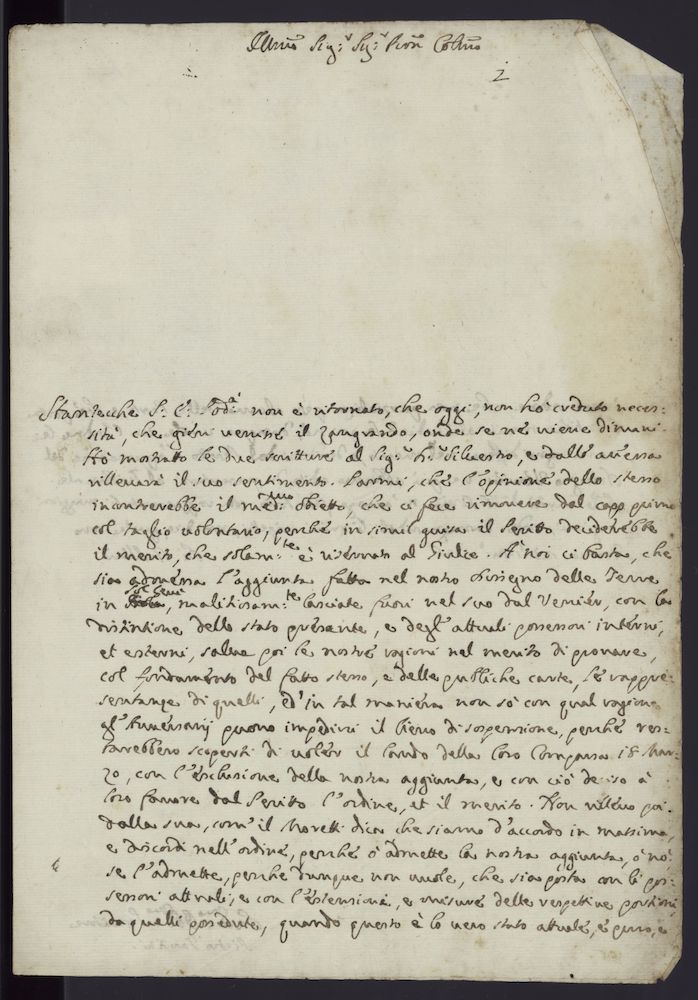 Illmo Sig:r Sig:r Pron Colmo
2
Stantecche S: E: Pod:à non è ritornato, che oggi, non hò creduto neces:
sità, che gieri venisse il Zangrando, onde se nè viene dimani.
Hò mostrato le due scritture al Sig:r Silvestro, e dall'
rillevarà il suo sentimento. Parmi, che l'opinione dello stesso
incontrerebbe il med:mo obietto, che ci fece rimovere dal capo primo
col taglio volontario, perché in simil guisa il Perito deciderebbe
il merito, che solam:te è riservato al Giudice. A' noi ci basta, che
sia admessa l'aggiunta fatta nel nostro dissegno delle Terre
in malitiosam:te lasciate fuori nel suo dal Venier, con la
distintione dello stato presente, e degl'attuali possessori interni,
et esterni, salve poi le nostre ragioni nel merito di provare,
col fondamento del fatto stesso, e delle publiche carte, le rappre:
sentanze di quelli, ed' in tal maniera non sò con qual ragione
gl'Aversarij possono impedirci il di sospensione, perché res:
tarebbero scoperti di voler il laudo della loro Comparsa 18 Mar:
zo, con l'esclusione della nostra aggiunta, e con ciò deciso à
loro favore dal Perito l'ordine, et il merito. Non rillevo poi
dalla sua, com'il Moretti dica che siamo d'accordo in massima,
e discordi nell'ordine, perché ò admette la nostra aggiunta, ò nò:
se l'admette, perche dunque non vuole, che sia posta con li pos:
sessori attuali, e con l'estensione, e misure delle respettive portioni
da quelli possedute, quando questo è lo vero stato attuale, è puro, e